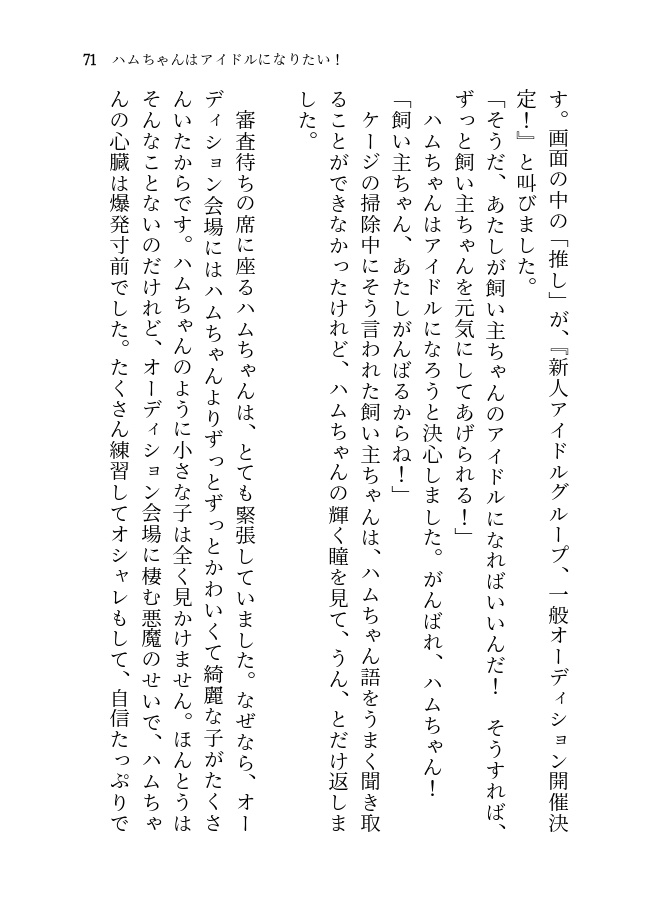 71　ハムちゃんはアイドルになりたい！
す。画面の中の「推し」が、『新人アイドルグループ、一般オーディション開催決
定！』と叫びました。
「そうだ、あたしが飼い主ちゃんのアイドルになればいいんだ！　そうすれば、
ずっと飼い主ちゃんを元気にしてあげられる！」
　ハムちゃんはアイドルになろうと決心しました。がんばれ、ハムちゃん！
「飼い主ちゃん、あたしがんばるからね！」
　ケージの掃除中にそう言われた飼い主ちゃんは、ハムちゃん語をうまく聞き取
ることができなかったけれど、ハムちゃんの輝く瞳を見て、うん、とだけ返しま
した。
　審査待ちの席に座るハムちゃんは、とても緊張していました。なぜなら、オー
ディション会場にはハムちゃんよりずっとずっとかわいくて綺麗な子がたくさ
んいたからです。ハムちゃんのように小さな子は全く見かけません。ほんとうは
そんなことないのだけれど、オーディション会場に棲む悪魔のせいで、ハムちゃ
んの心臓は爆発寸前でした。たくさん練習してオシャレもして、自信たっぷりで